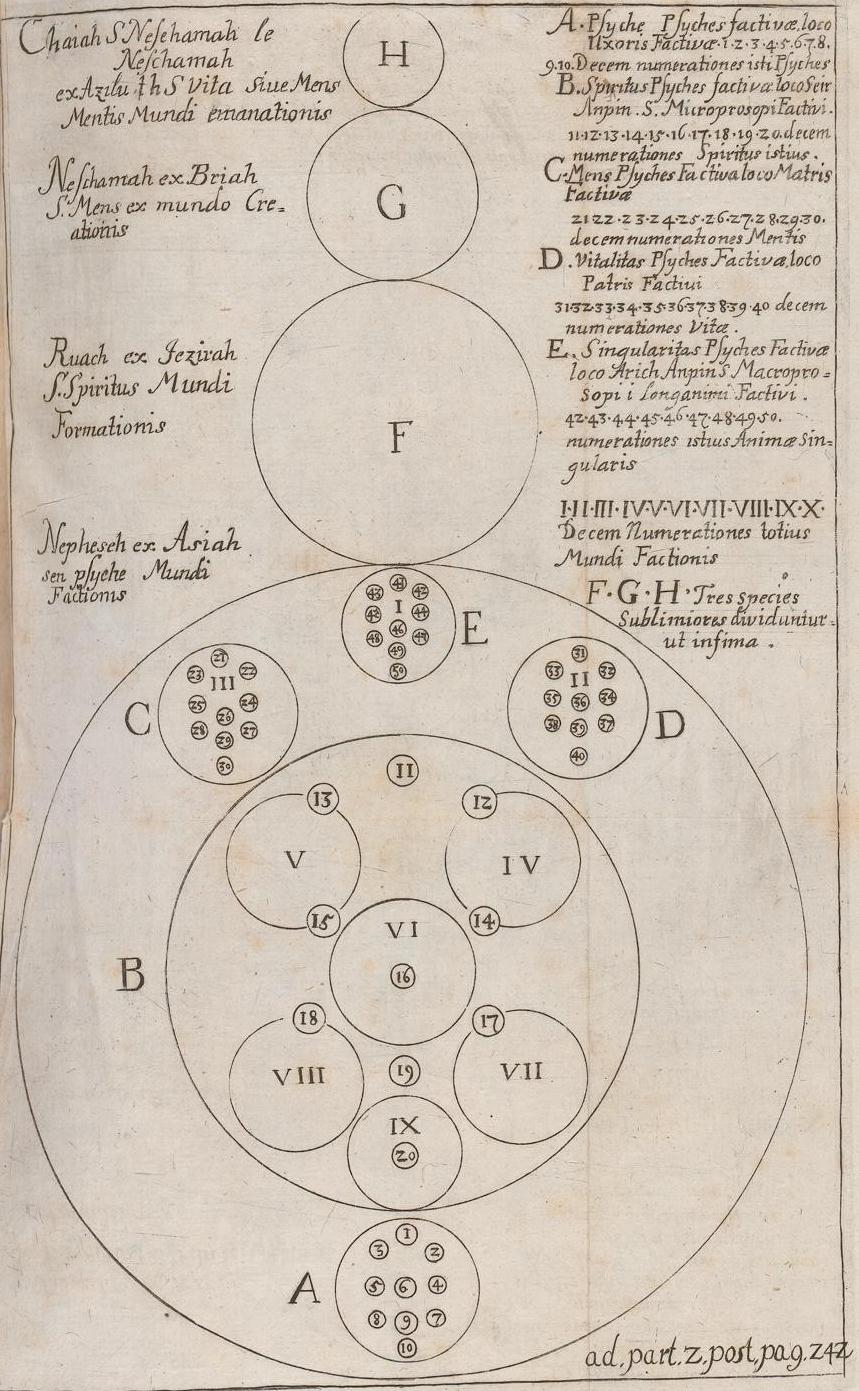 Chaiah S. Neschamah le
Neschamah
ex Azilu th S Vita Siue Mens
Mentis Mundi emanationis
H
Neschamah ex Briah
S. Mens ex mundo Cre=
ationis
G
Ruach ex Jezirah
S. Spiritus Mundi
Formationis
F
Nephesch ex Asiah
seu psyche Mundi
Factionis
A. Psyche Psyches factivæ, loco
Uxoris Factivæ. 1. 2. 3. 4. 5. 6. 7. 8.
9. 10. Decem numerationes isti Psyches
B. Spiritus Psyches factivæ loco Seir
Anpin. S. Microprosopi Factivi.
11. 12. 13. 14. 15. 16. 17. 18. 19. 20. decem
numerationes Spiritus istius.
C. Mens Psyches Factiva loco Matris
Factivæ
21 22. 23. 24. 25. 26. 27. 28. 29. 30.
decem numerationes Mentis
D. Vitalitas Psyches Factivæ, loco
Patris Factivi
31. 32. 33. 34. 35. 36 37. 38 39. 40 decem
numerationes Vitæ.
E. Singularitas Psyches Factivæ
loco Arich Anpin S. Macropro=
Sopi i Longanimi Factivi.
42. 43. 44. 45. 46. 47. 48. 49. 50.
numerationes istius Animæ Sin=
gularis
I. II. III. IV. V. VI. VII. VIII. IX. X.
Decem Numerationes totius
Mundi Factionis
F. G. H. Tres species
Sublimiores dividuntur.
ut infima.
41
43 42
I
42 44
46
48 44
49
50
E
21
23 22
III
25 24
26
28 27
29
30
C
31
33 32
II
35 36 34
38 39 37
40
D
11
13 12
V IV
15 14
VI
16
B
18 17
VIII VII
19
IX
20
1
3 2
5 6 4
8 9 7
10
A
ad. part. 2. post. pag. 242